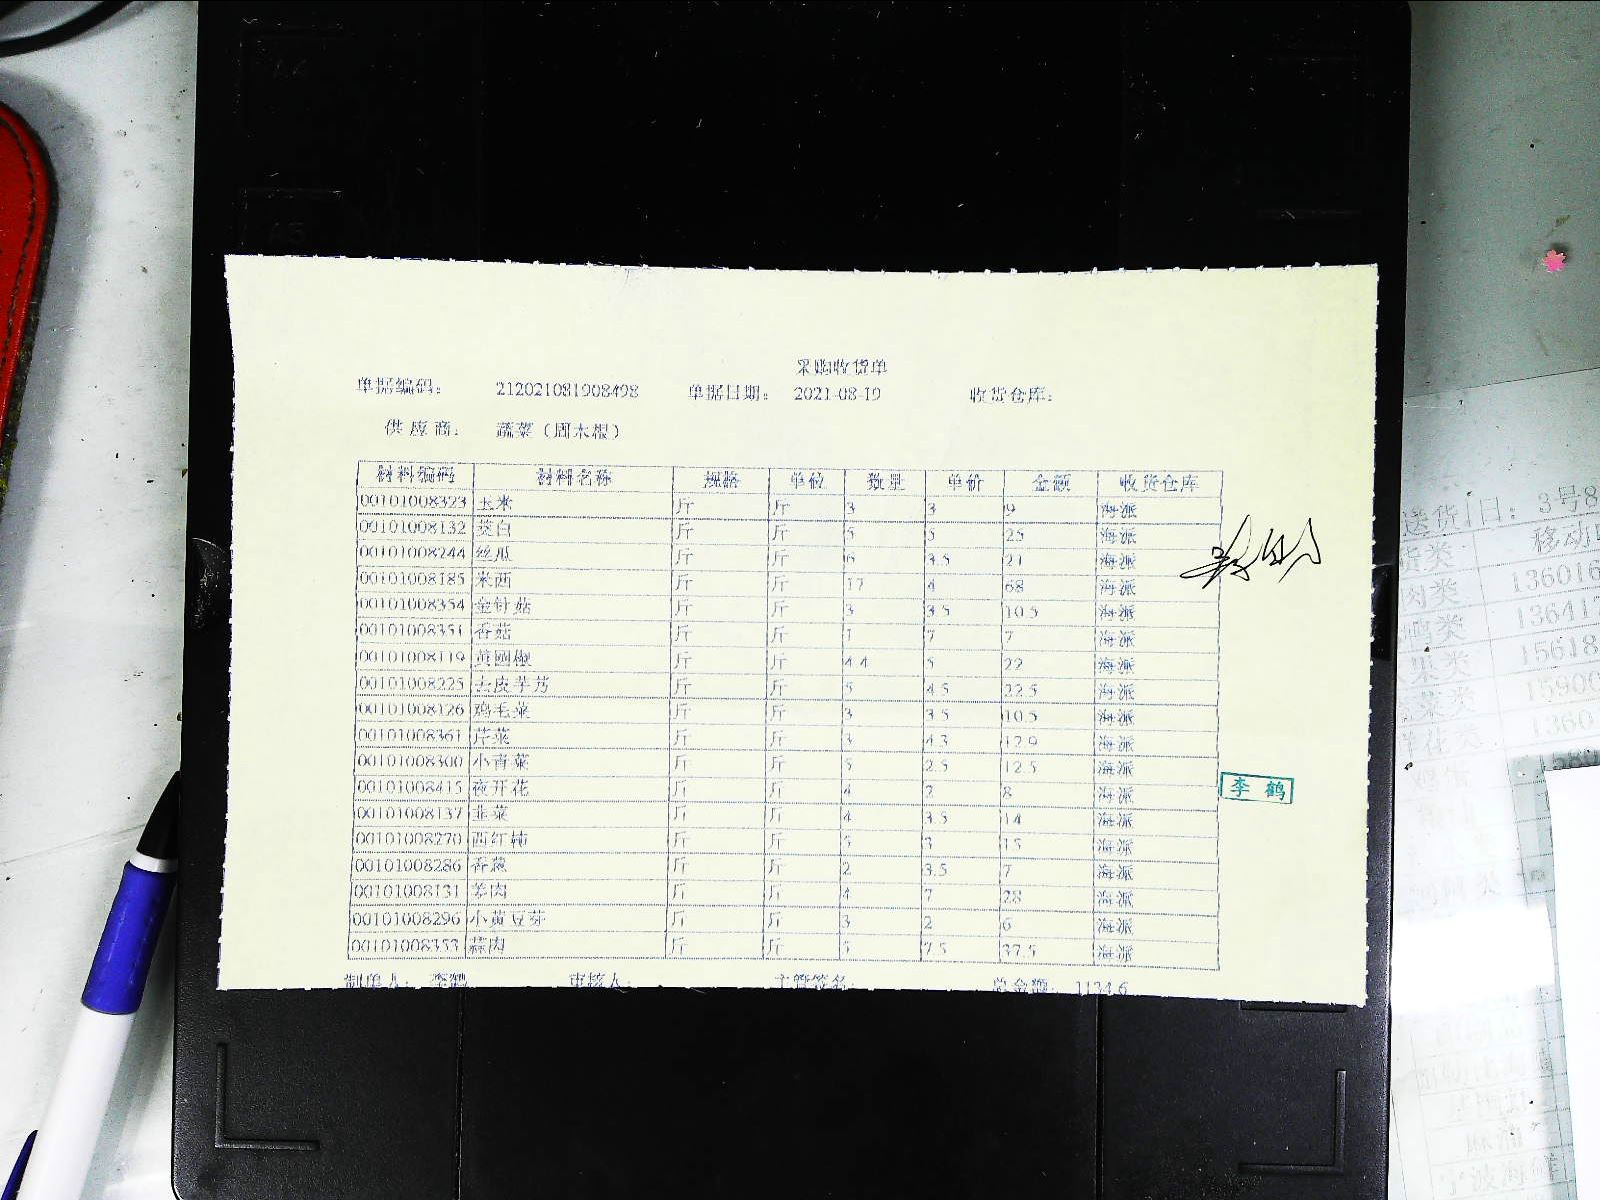 采购收货单
单据编码： 212021081908498 单据日期： 2021-08-19 收货仓库：
供应商： 蔬菜（周木根）
材料编码 材料名称 规格 单位 数量 单价 金额 收货仓库
00101008323 玉米 斤 斤 3 3 9 海派
00101008132 茭白 斤 斤 5 5 25 海派
00101008244 丝瓜 斤 斤 6 3.5 21 海派
00101008185 米西 斤 斤 17 4 68 海派
00101008354 金针菇 斤 斤 3 3.5 10.5 海派
00101008351 香菇 斤 斤 1 7 7 海派
00101008119 黄圆椒 斤 斤 4.4 5 22 海派
00101008225 去皮芋艿 斤 斤 5 4.5 22.5 海派
00101008126 鸡毛菜 斤 斤 3 3.5 10.5 海派
00101008361 芹菜 斤 斤 3 4.3 12.9 海派
00101008300 小青菜 斤 斤 5 2.5 12.5 海派
00101008415 夜开花 斤 斤 4 2 8 海派
00101008137 韭菜 斤 斤 4 3.5 14 海派
00101008270 西红柿 斤 斤 5 3 15 海派
00101008286 香葱 斤 斤 2 3.5 7 海派
00101008131 姜肉 斤 斤 4 7 28 海派
00101008296 小黄豆芽 斤 斤 3 2 6 海派
00101008353 蒜肉 斤 斤 5 7.5 37.5 海派
制单人： 李鹤 审核人： 主管签名： 总金额： 1134.6
李鹤
送货 日：3号8
货类 移动
肉类 13601
鸡类 13641
果类 15618
菜类 15900